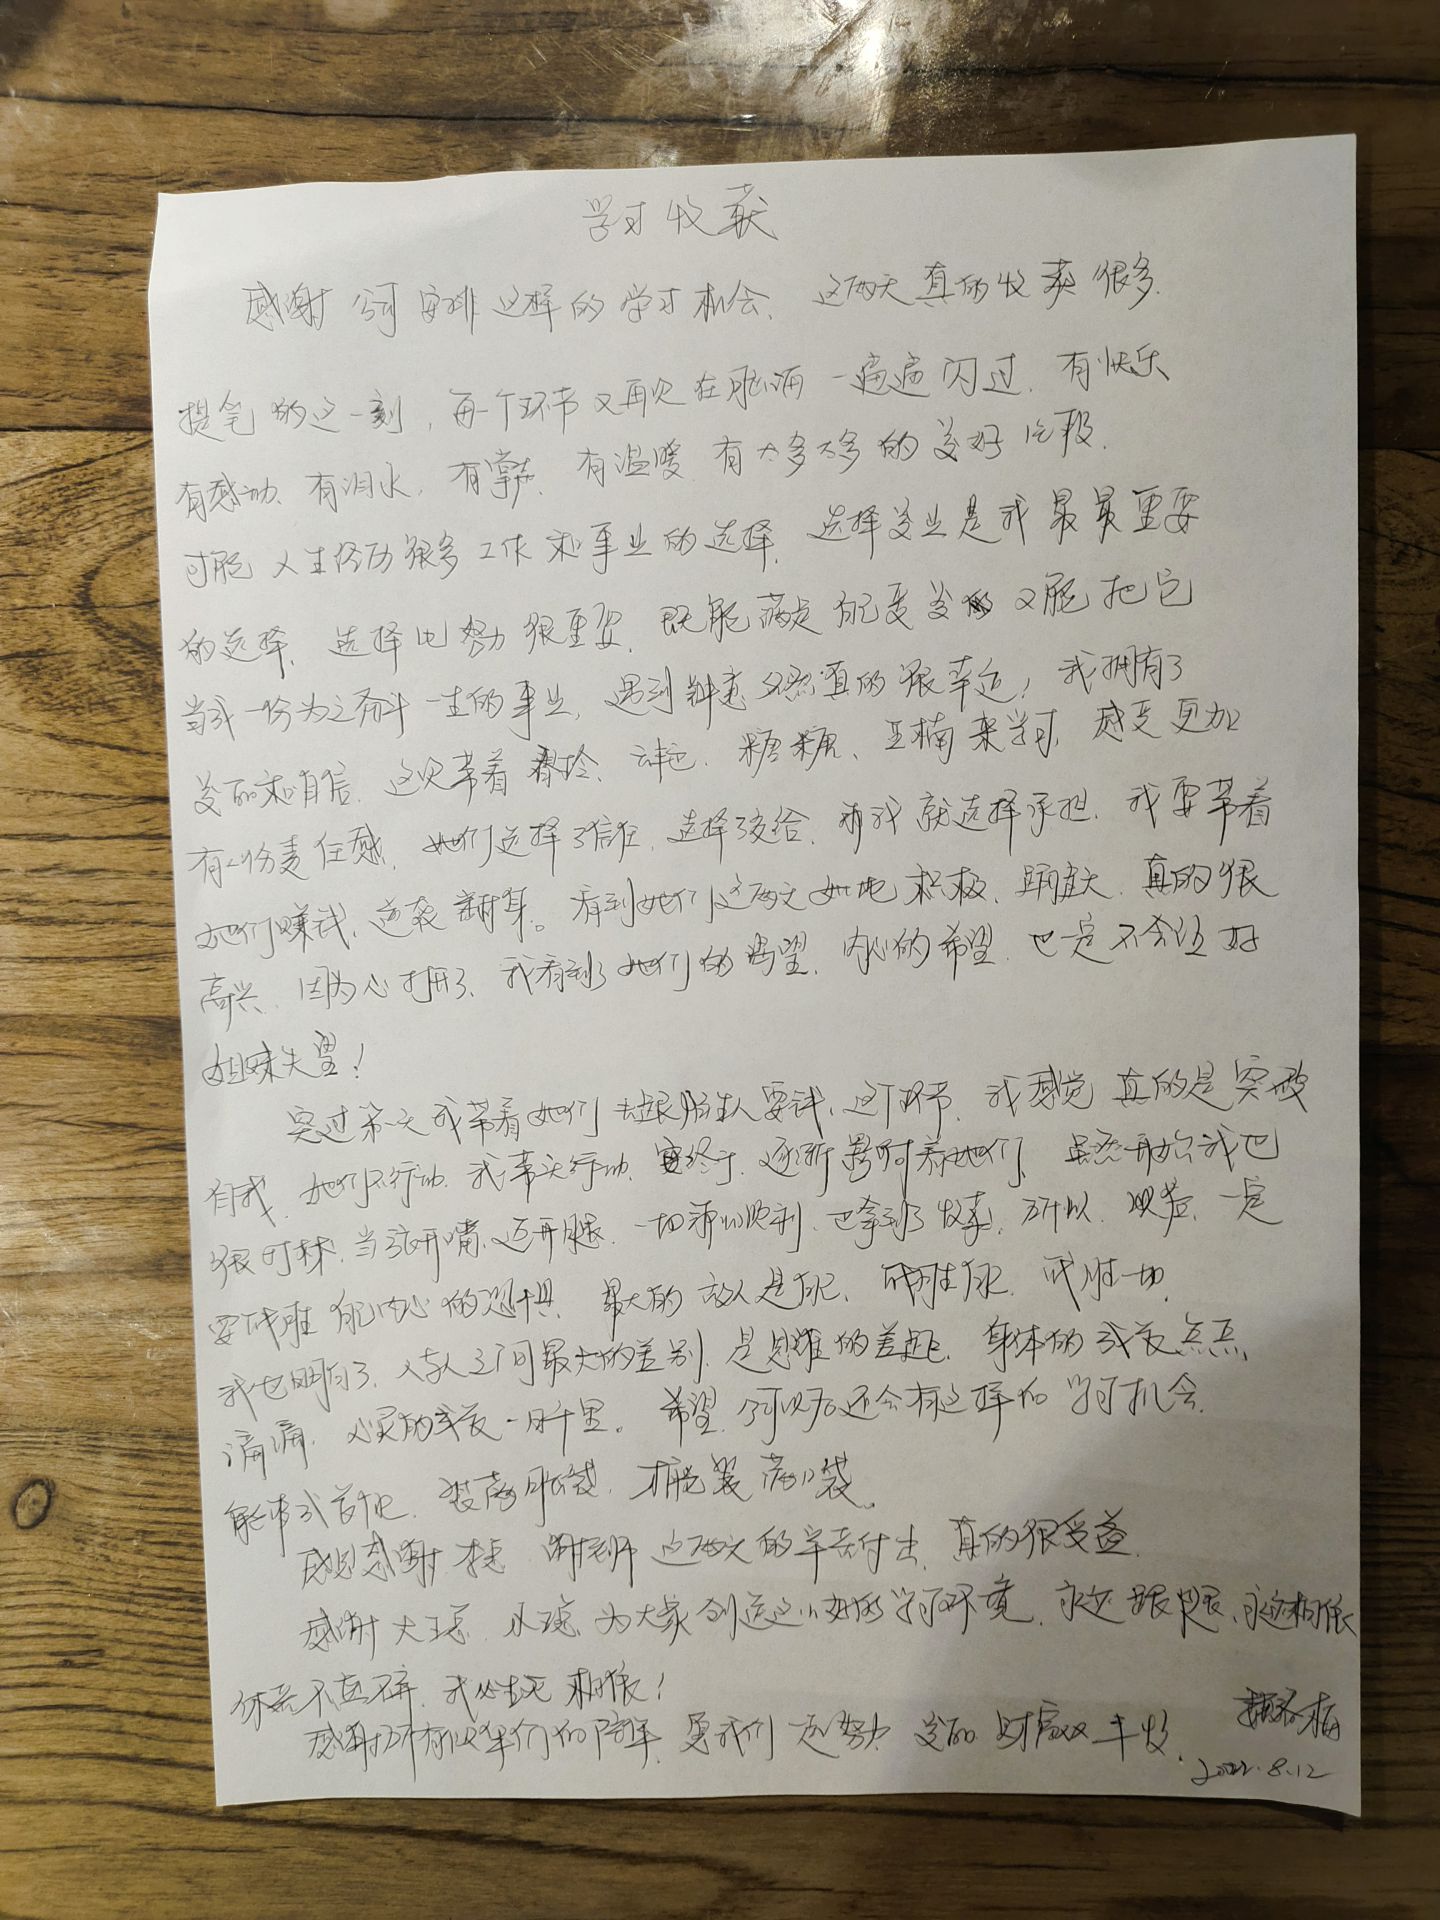 学习收获
感谢公司安排这样的学习机会、这两天真的收获很多.
提笔的这一刻，每一个环节又再次在脑海一遍遍闪过.有快乐
有感动、有泪水.有掌声.有温暖.有太多太多的美好
人生经历很多工作和事业的选择.选择美业是我最最重要
的选择.选择比努力很重要.既能满足自己变美的又能把它
当成一份为之奋斗一生的事业，遇到 真的很幸运！我拥有了
美丽和自信.这次带着 糖糖、亚楠来学习.感受更加
有一份责任感.她们选择了信任.选择了交给.那我就选择承担.我要带着
她们赚钱.逆袭 .看到她们这两天如此积极.踊跃.真的很
高兴.因为心打开了、我看到了她们的渴望.内心的希望.也一定不会让好
姐妹失望！
第一天我带着她们去跟陌生人要钱、这个环节.我感觉真的是突破
自我.她们不行动.我带头行动. 终于.逐渐 她们、虽然开始我也
很 .当张开嘴、迈开腿.一切都很顺利.也拿到了收获.所以. 一定
要战胜自己内心的恐惧.最大的敌人是自己、战胜自己.战胜一切.
我也明白了.人与人之间最大的差别.是思维的差距.身体的成长点点
滴滴.心灵的成长一日千里。希望公司以后还会有这样的学习机会.
装满脑袋.才能装满口袋。
感恩感谢 谢 老师这两天的辛苦付出.真的很受益.
感谢大 . 为大家创造这么好的学习环境.永远跟随、永远相依
你若不离不弃.我必生死相依！
感谢所有伙伴们的陪伴. 我们一起努力.美丽财富双丰收.
2022.8.12